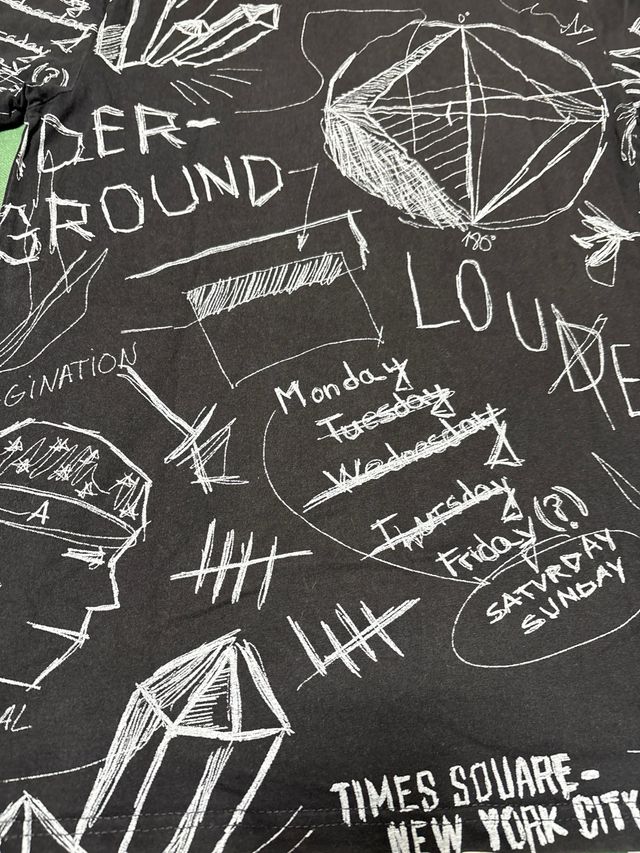 (?)
0°
DER-
GROUND
180°
LOUDE
GINATION
Monday
Tuesday
Wednesday
Thursday
Friday (?)
SATURDAY
SUNDAY
A
AL
TIMES SQUARE-
NEW YORK CITY